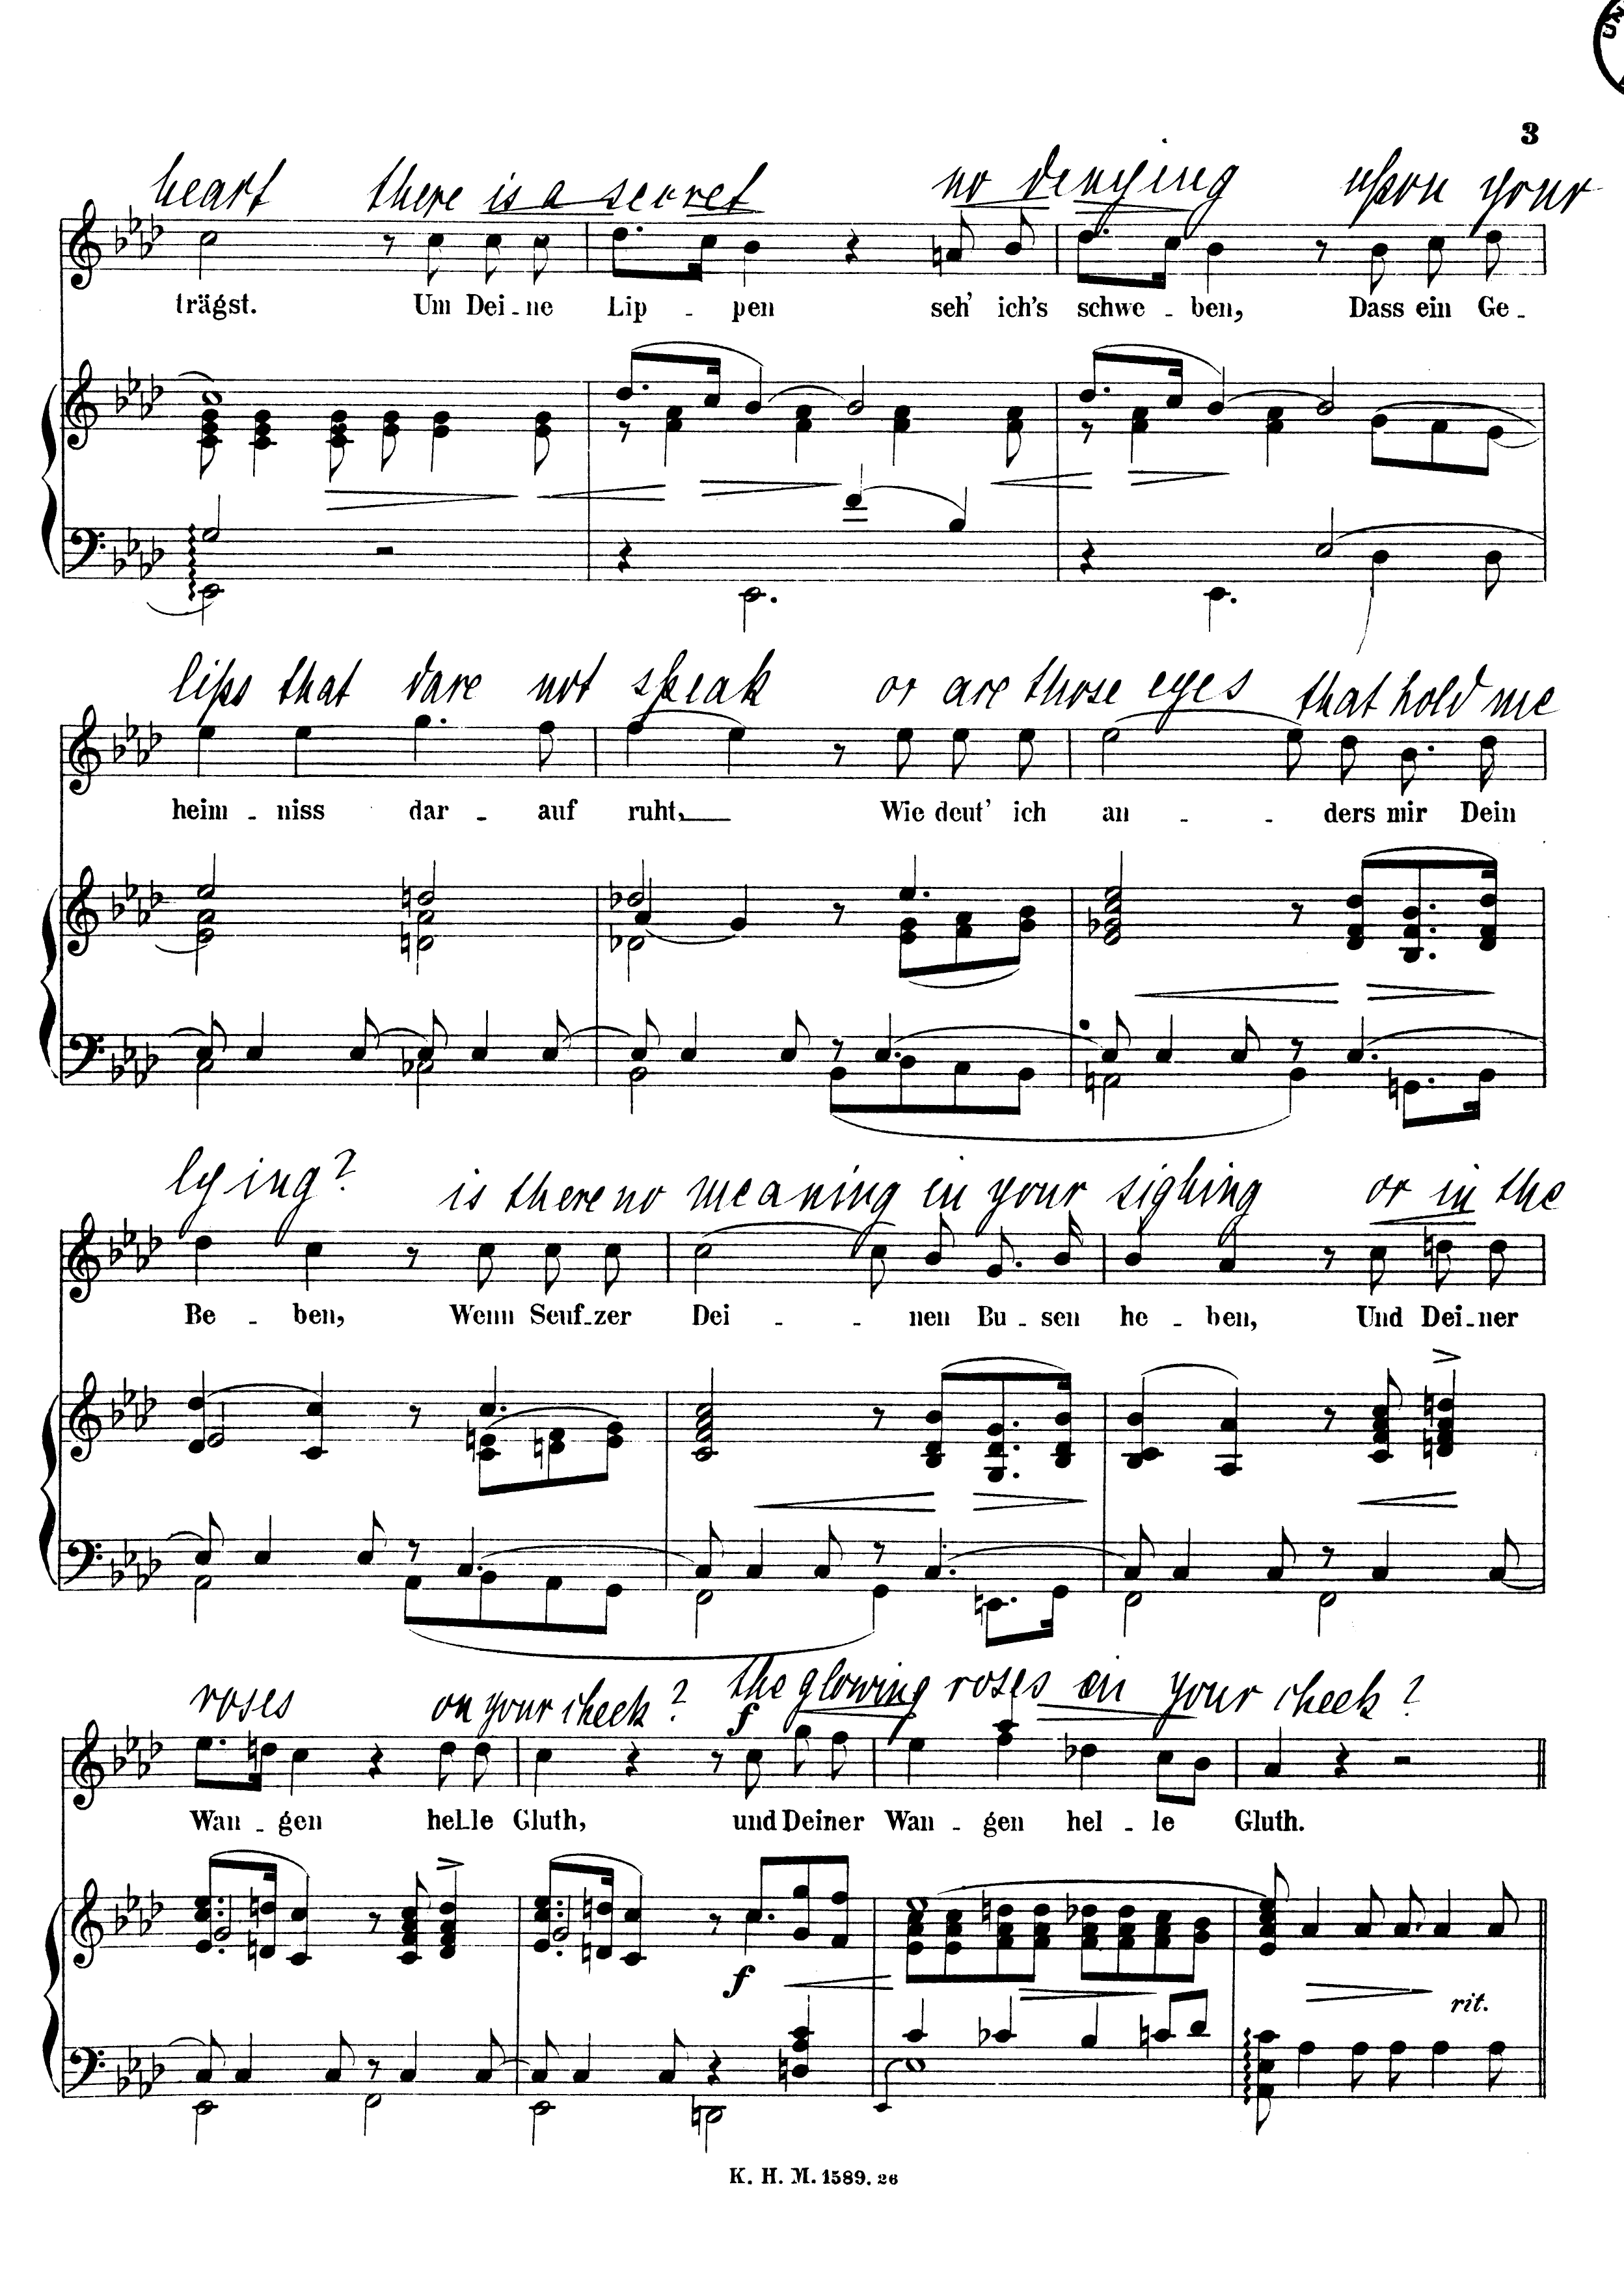 3
heart there is a secret no denying upon your
trägst. Um Dei-ne Lip-pen seh' ich's schwe-ben, Dass ein Ge-
lips that dare not speak or are those eyes that hold me
heim-niss dar-auf ruht, Wie deut' ich an-ders mir Dein
lying? is there no meaning in your sighing or in the
Be-ben, Wenn Seuf-zer Dei-nen Bu-sen he-ben, Und Dei-ner
roses on your cheek? the glowing roses on your cheek?
f
Wan-gen hel-le Gluth, und Deiner Wan-gen hel-le Gluth.
f
rit.
K. H. M. 1589. 26